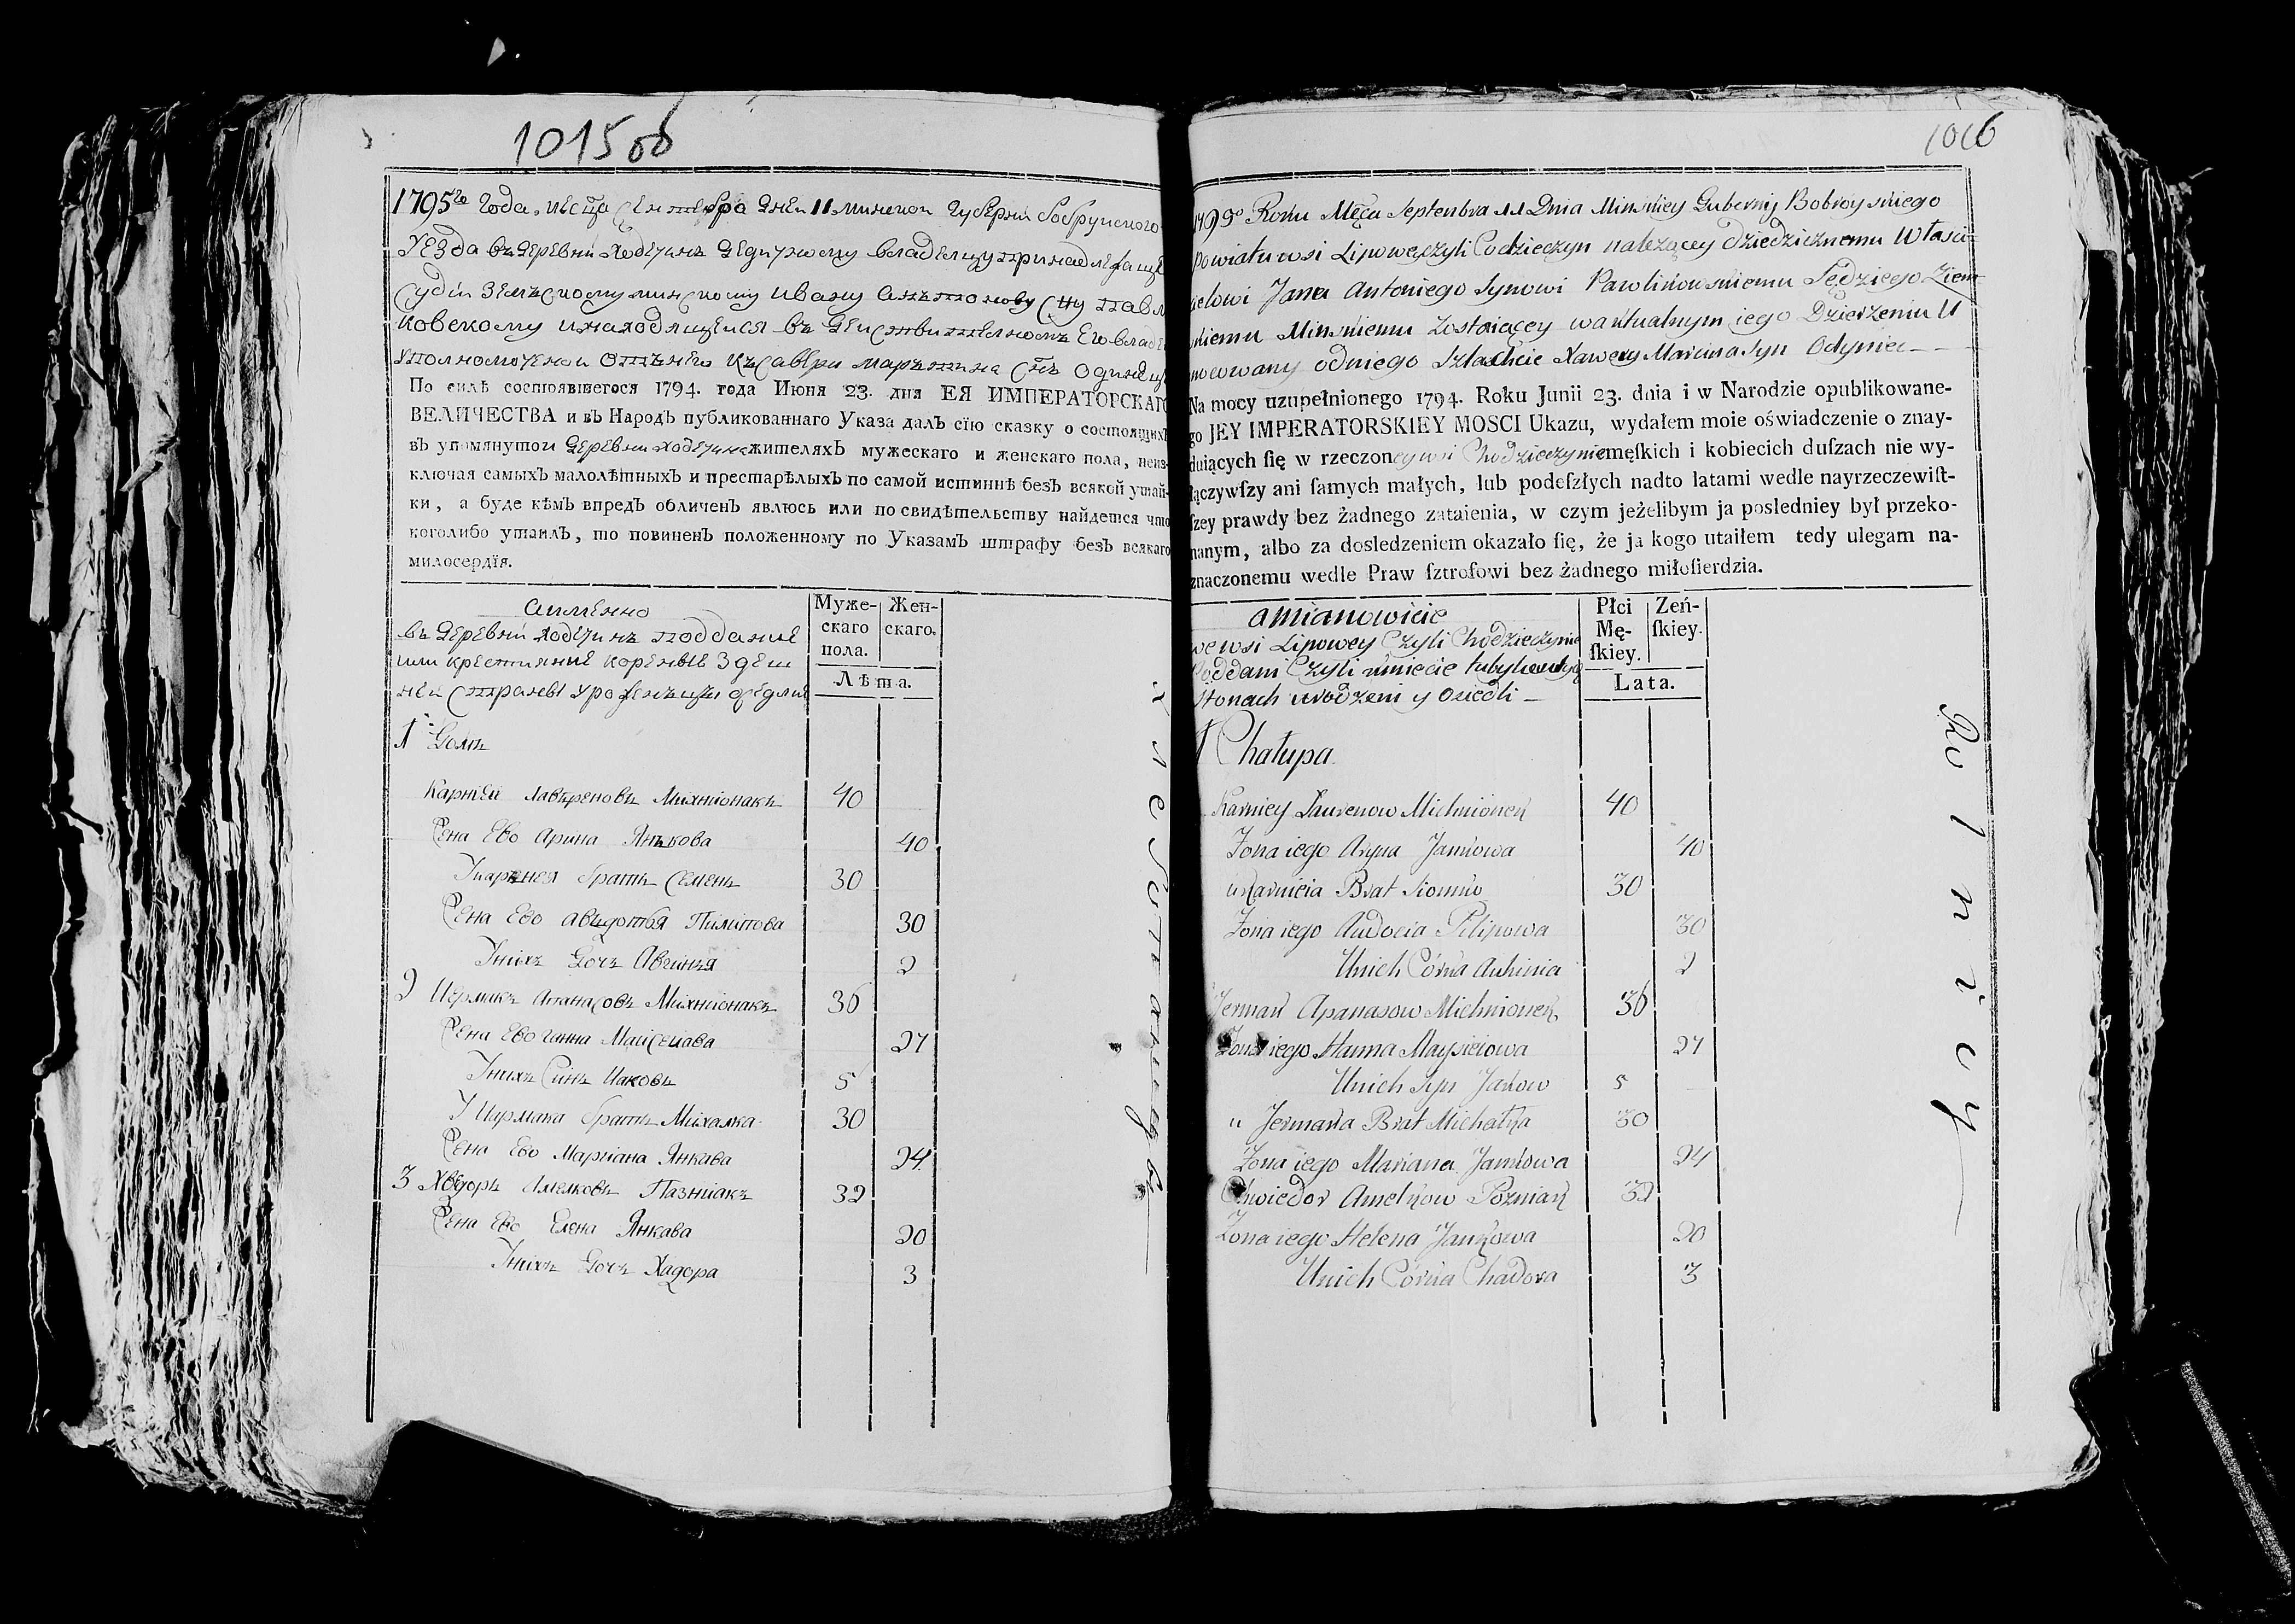 1015 об
1795го года месца Сентебра дня 11 минской Губерни бобруйского
уезда въ деревни Ходечинъ дедичному владелцу принадлежаще
Судьи Земъскому минскому Ивану Анътонову Сну павл
ковскому инаходящеися въ действителномъ Его владе
Уполномоченой отънего Късавери маръ тина Снъ Одинец
По силѣ состоявшегося 1794. года Июня 23. дня ЕЯ ИМПЕРАТОРСКАГО
ВЕЛИЧЕСТВА и въ Народъ публикованнаго Указа далъ сїю сказку о состоящихъ
въ упомянутои деревни ходечине жителяхъ мужескаго и женскаго пола, неиз-
ключая самыхъ малолѣтныхъ и престарѣлыхъ по самой истиннѣ безъ всякой утай-
ки, а буде кѣмъ впредъ обличенъ явлюсь или по свидѣтельству найдется что
коголибо утаилъ, то повиненъ положенному по Указамъ штрафу безъ всякаго
милосердїя.
аимѣнно
въ деревни ходечинъ поддание
или крестияние коренные Здеш
неи Страны урожѣнъцы
Муже-
скаго
пола.
Жен-
скаго.
Лѣта.
1 Домъ
Карнѣй Лавъреновъ Михнiонакъ 40
Жена Ево Арина Янъкова 40
У карънея братъ Семенъ 30
Жена Ево авъдотья Пилипова 30
Унихъ Дочъ Авгинья 2
2 Иермакъ Апанасовъ Михнiонакъ 36
Жена Ево ганна Майсеиава 27
Унихъ Синъ Иаковъ 5
У Иармака братъ Михалка 30
Жена Ево Марияна Янкава 24
3 Хвѣдоръ Амелковъ Пазнiакъ 32
Жена Ево Елена Янкава 20
Унихъ Дочъ Хадора 3
1016
1795o Roku Męca Septenbra 11 Dnia Minskiey Gubernij Bobroyskiego
powiatu wsi Lipowęczyli Codzieczyn należącey dziedzicznemu Własci
cielowi Jana Antoniego Synowi Pawlikowskiemu Sędziego Ziem
skiemu Minskiemu zostaiącey waktualnym iego Dzierżeniu U
mocowany odniego Szlachcic Xawery Marcina Syn Odyniec
Na mocy uzupełnionego 1794. Roku Junii 23. dnia i w Narodzie opublikowane-
go JEY IMPERATORSKIEY MOSCI Ukazu, wydałem moie oświadczenie o znay-
duiących ſię w rzeczoney wsi Chodzieczynie męſkich i kobiecich duſzach nie wy-
łączywſzy ani ſamych małych, lub podeſzłych nadto latami wedle nayrzeczewiſt-
ſzey prawdy bez żadnego zataienia, w czym jeżelibym ja posledniey był przeko-
nanym, albo za dosledzeniem okazało ſię, że ja kogo utaiłem tedy ulegam na-
znaczonemu wedle Praw ſztrofowi bez żadnego miłoſierdzia.
amianowicie
we wsi Lipowey Czyli Chodzieczynie
Poddani Czyli kmiecie
Stonach urodzeni y osiedli
Płci
Mę-
ſkiey.
Zeń-
ſkiey.
Lata.
1 Chałupa.
Karniey Laurenow Michnionek 40
Zona iego Aryna Jankowa 40
u Karnieia Brat Siomin 30
Zona iego Audocia Pilipowa 30
Unich Córka Auhinia 2
Jermak Apanasow Michnionek 36
Zona iego Hanna Maysieiowa 27
Unich Syn Jakow 5
u Jermaka Brat Michałka 30
Zona iego Mariana Jankowa 24
Chwiedor Amelkow Pozniak 32
Zona iego Helena Jankowa 20
Unich Córka Chadora 3